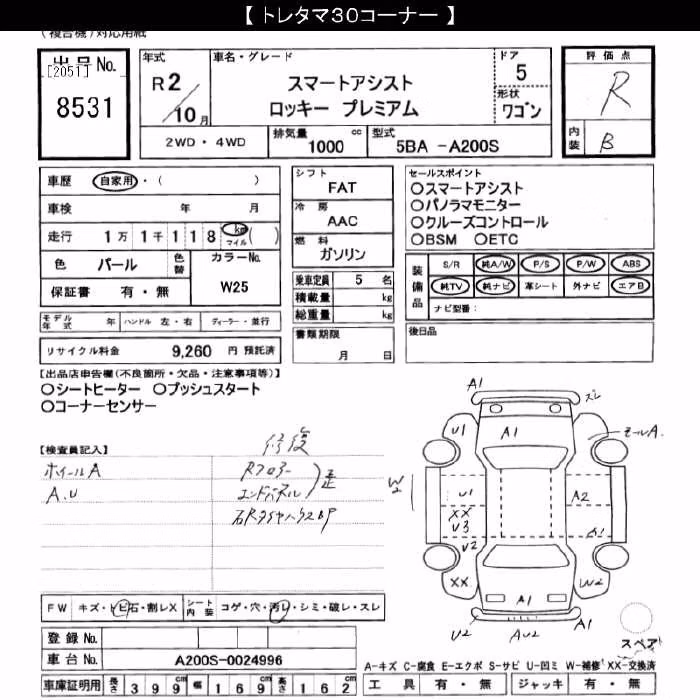 【 トレタマ30コーナー 】
(複合機)対応用紙
出品No.
[2051]
8531
年式
R2
10月
車名・グレード
スマートアシスト
ロッキー プレミアム
ドア
5
形状
ワゴン
評価点
R
内装
B
2WD・4WD
排気量
1000 cc
型式
5BA -A200S
車歴 自家用・( )
車検 年 月
走行 1万1千118 km マイル( )
色 パール 色替
カラーNo.
W25
保証書 有・無
シフト
FAT
冷房
AAC
燃料
ガソリン
乗車定員 5 名
積載量 kg
総重量 kg
書類期限
月 日
セールスポイント
〇スマートアシスト
〇パノラマモニター
〇クルーズコントロール
〇BSM 〇ETC
装備品
S/R 純A/W P/S P/W ABS
純TV 純ナビ 革シート 外ナビ エアB
ナビ型番:
後日品
モデル年式 年 ハンドル 左・右 ディーラー・並行
リサイクル料金 9,260 円 預託済
【出品店申告欄(不良箇所・欠品・注意事項等)】
〇シートヒーター 〇プッシュスタート
〇コーナーセンサー
【検査員記入】
修復
ホイールA
A.U
Rフロアー
エンドパネル
歪
A1
ズレ
U1
A1
モールA.
W2
U1
XX
U3
A2
A1
U2
XX
W2
A1
U2
AU2
A1
スペア
FW キズ・トビ石・割レX
シート内装 コゲ・穴・汚レ・シミ・破レ・スレ
登録No.
車台No. A200S-0024996
車庫証明用 長さ 399cm 幅 169cm 高さ 162cm
A-キズ C-腐食 E-エクボ S-サビ U-凹ミ W-補修 XX-交換済
工具 有・無 ジャッキ 有・無